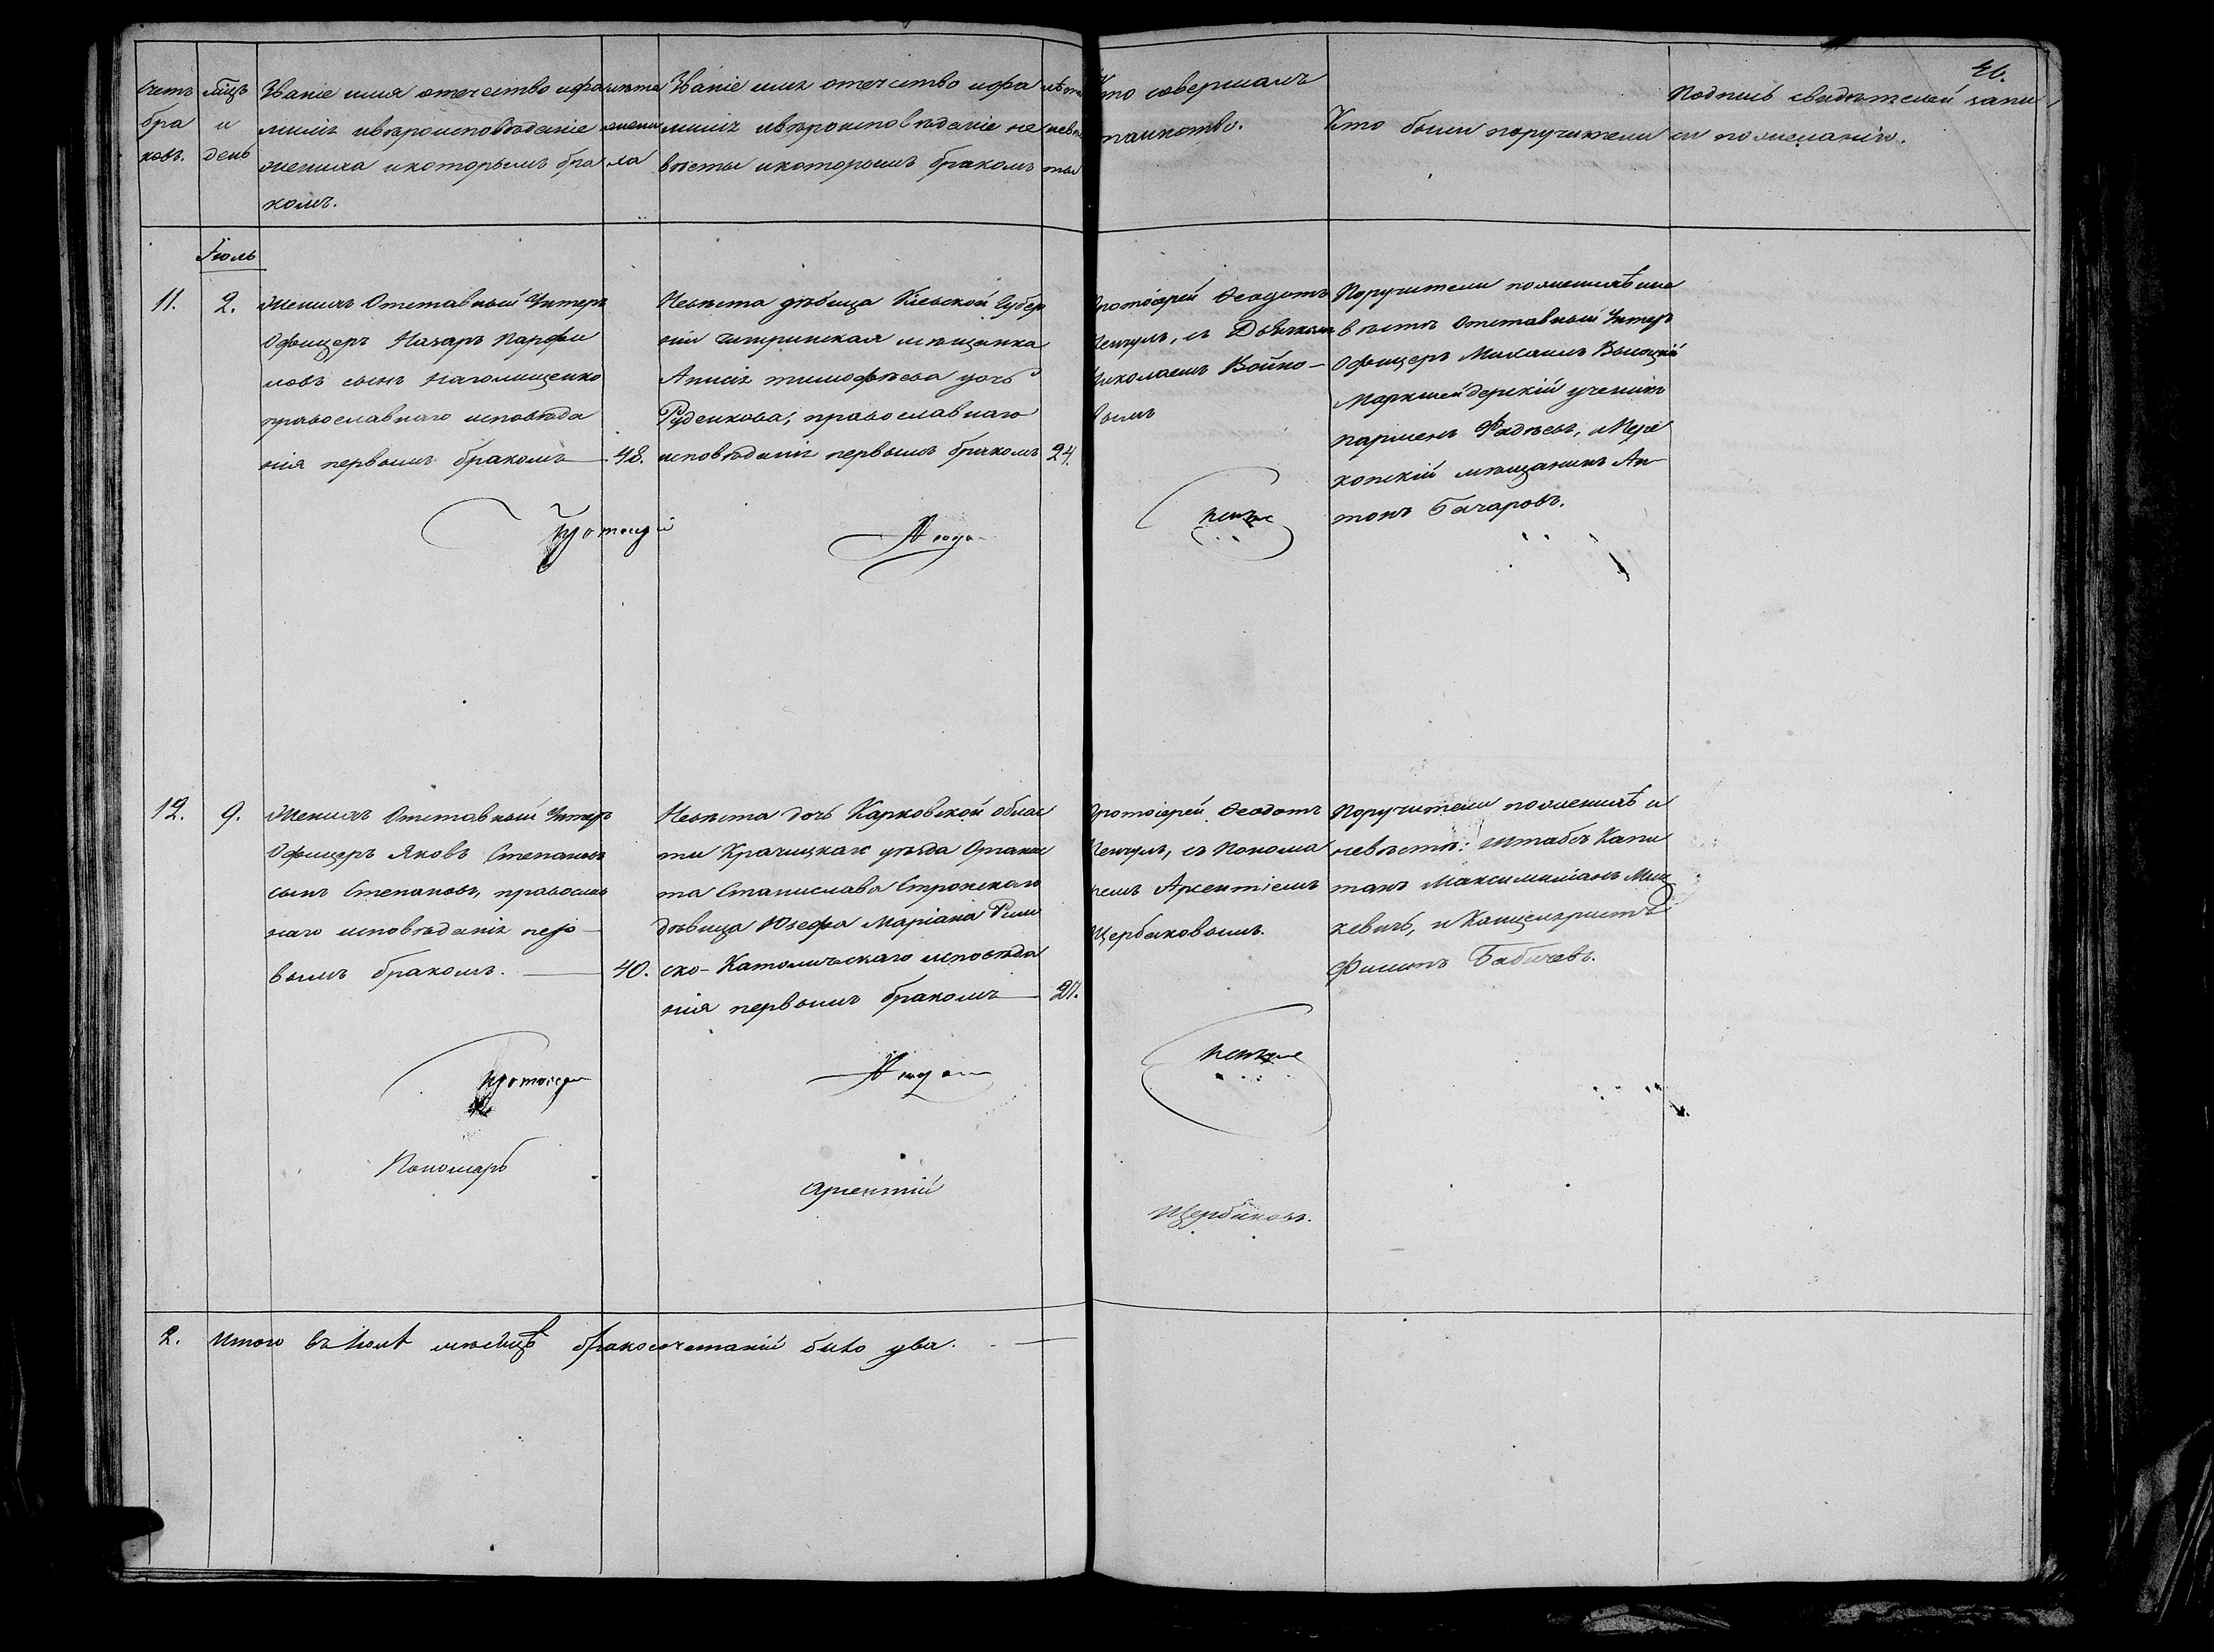 46.
Счетъ
бра
ковъ.
мѣцъ
и
день
Званіе имя отечество ифа
милія ивѣроисповѣданіе
жениха икоторымъ бра
комъ.
лѣта
жени
ха
Званіе имя отечество ифа
милія ивѣроисповѣданіе не
вѣсты икоторымъ бракомъ
лѣта
невѣс
ты
Кто совершалъ
таинство.
Кто были поручители
Подпись свидѣтелей запи
си по желанію.
Іюль
11.
2.
Женихъ Отставный Унтеръ
Офицеръ Назаръ Парфи
ловъ сынъ Наголищенко
православнаго исповѣда
нія первымъ бракомъ
48.
Невѣста дѣвица Кіевской Губер
ніи Чигринская мѣщанка
Анисія тимофѣева дочь
Руденкова, православнаго
исповѣданія первымъ бракомъ
24.
Протоіерей Ѳеодотъ
, съ Дьячкомъ
Николаемъ Война-
вымъ
Поручители поженихѣ ине
вѣстѣ Отставный Унтеръ
Офицеръ Михаилъ Высоцкій
Маркшейдерскій ученикъ
парменъ Фадѣевъ, иПере
копскій мѣщанинъ Ан
тонъ Бачаровъ.
Протоіерей
Ѳеодо
12.
9.
Женихъ Отставный Унтеръ
Офицеръ Яковъ Степановъ
сынъ Степановъ, православ
наго исповѣданія пер
вымъ бракомъ.
40.
Невѣста дочь Карковской облас
ти уѣзда Органис
та Станислава Стронскаго
дѣвица Юзефа Маріана Рим
ско-Католическаго исповѣда
нія первымъ бракомъ
Протоіерей Ѳеодотъ
, съ Понома
ремъ Арсентіемъ
Щербаковымъ.
Поручители поженихѣ и
невѣстѣ: Штабсъ Капи
танъ Максимиліанъ Миц
кевичъ, и Канцеляристъ
Филипъ Бабичевъ.
Протоіерей
Ѳеодо
Пономарь
Арсентій
Щербаковъ.
2.
Итого въ Іюлѣ мѣсяцѣ бракосочетаній было два.